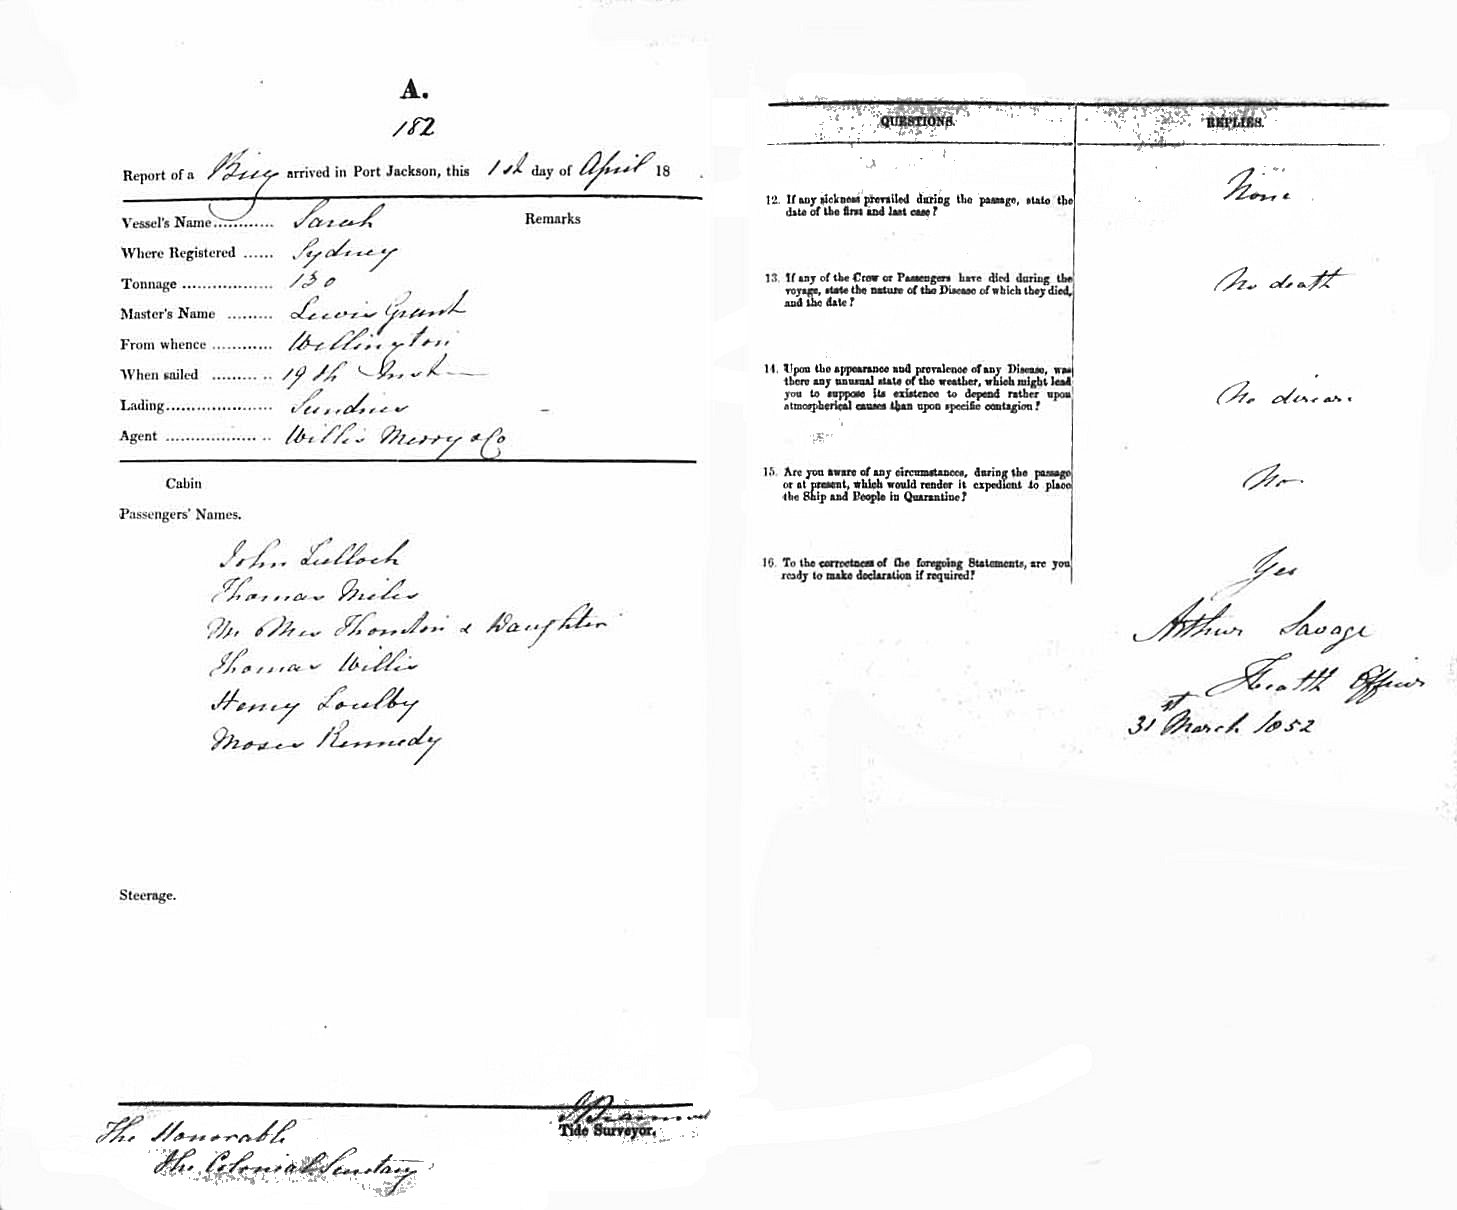 A.
182
Report of a Brig arrived in Port Jackson, this 1st day of April 18
Vessel's Name............ Sarah Remarks
Where Registered ...... Sydney
Tonnage .................. 130
Master's Name ......... Lewis Grant
From whence ............ Wellington
When sailed ......... .. 19th Inst
Lading..................... Sundries
Agent .................. .. Willis Merry & Co
Cabin
Passengers' Names.
John Tulloch
Thomas Miles
Mr & Mrs Thornton & Daughter
Thomas Willis
Henry Loulby
Moses Kennedy
Steerage.
Tide Surveyor.
The Honorable
The Colonial Secretary
QUESTIONS. REPLIES.
12. If any sickness prevailed during the passage, state the
date of the first and last case? None
13. If any of the Crew or Passengers have died during the
voyage, state the nature of the Disease of which they died,
and the date? No death
14. Upon the appearance and prevalence of any Disease, was
there any unusual state of the weather, which might lead
you to suppose its existence to depend rather upon
atmospherical causes than upon specific contagion? No disease
15. Are you aware of any circumstances, during the passage
or at present, which would render it expedient to place
the Ship and People in Quarantine? No
16. To the correctness of the foregoing Statements, are you
ready to make declaration if required? Yes
Arthur Savage
Health Officer
31st March 1852